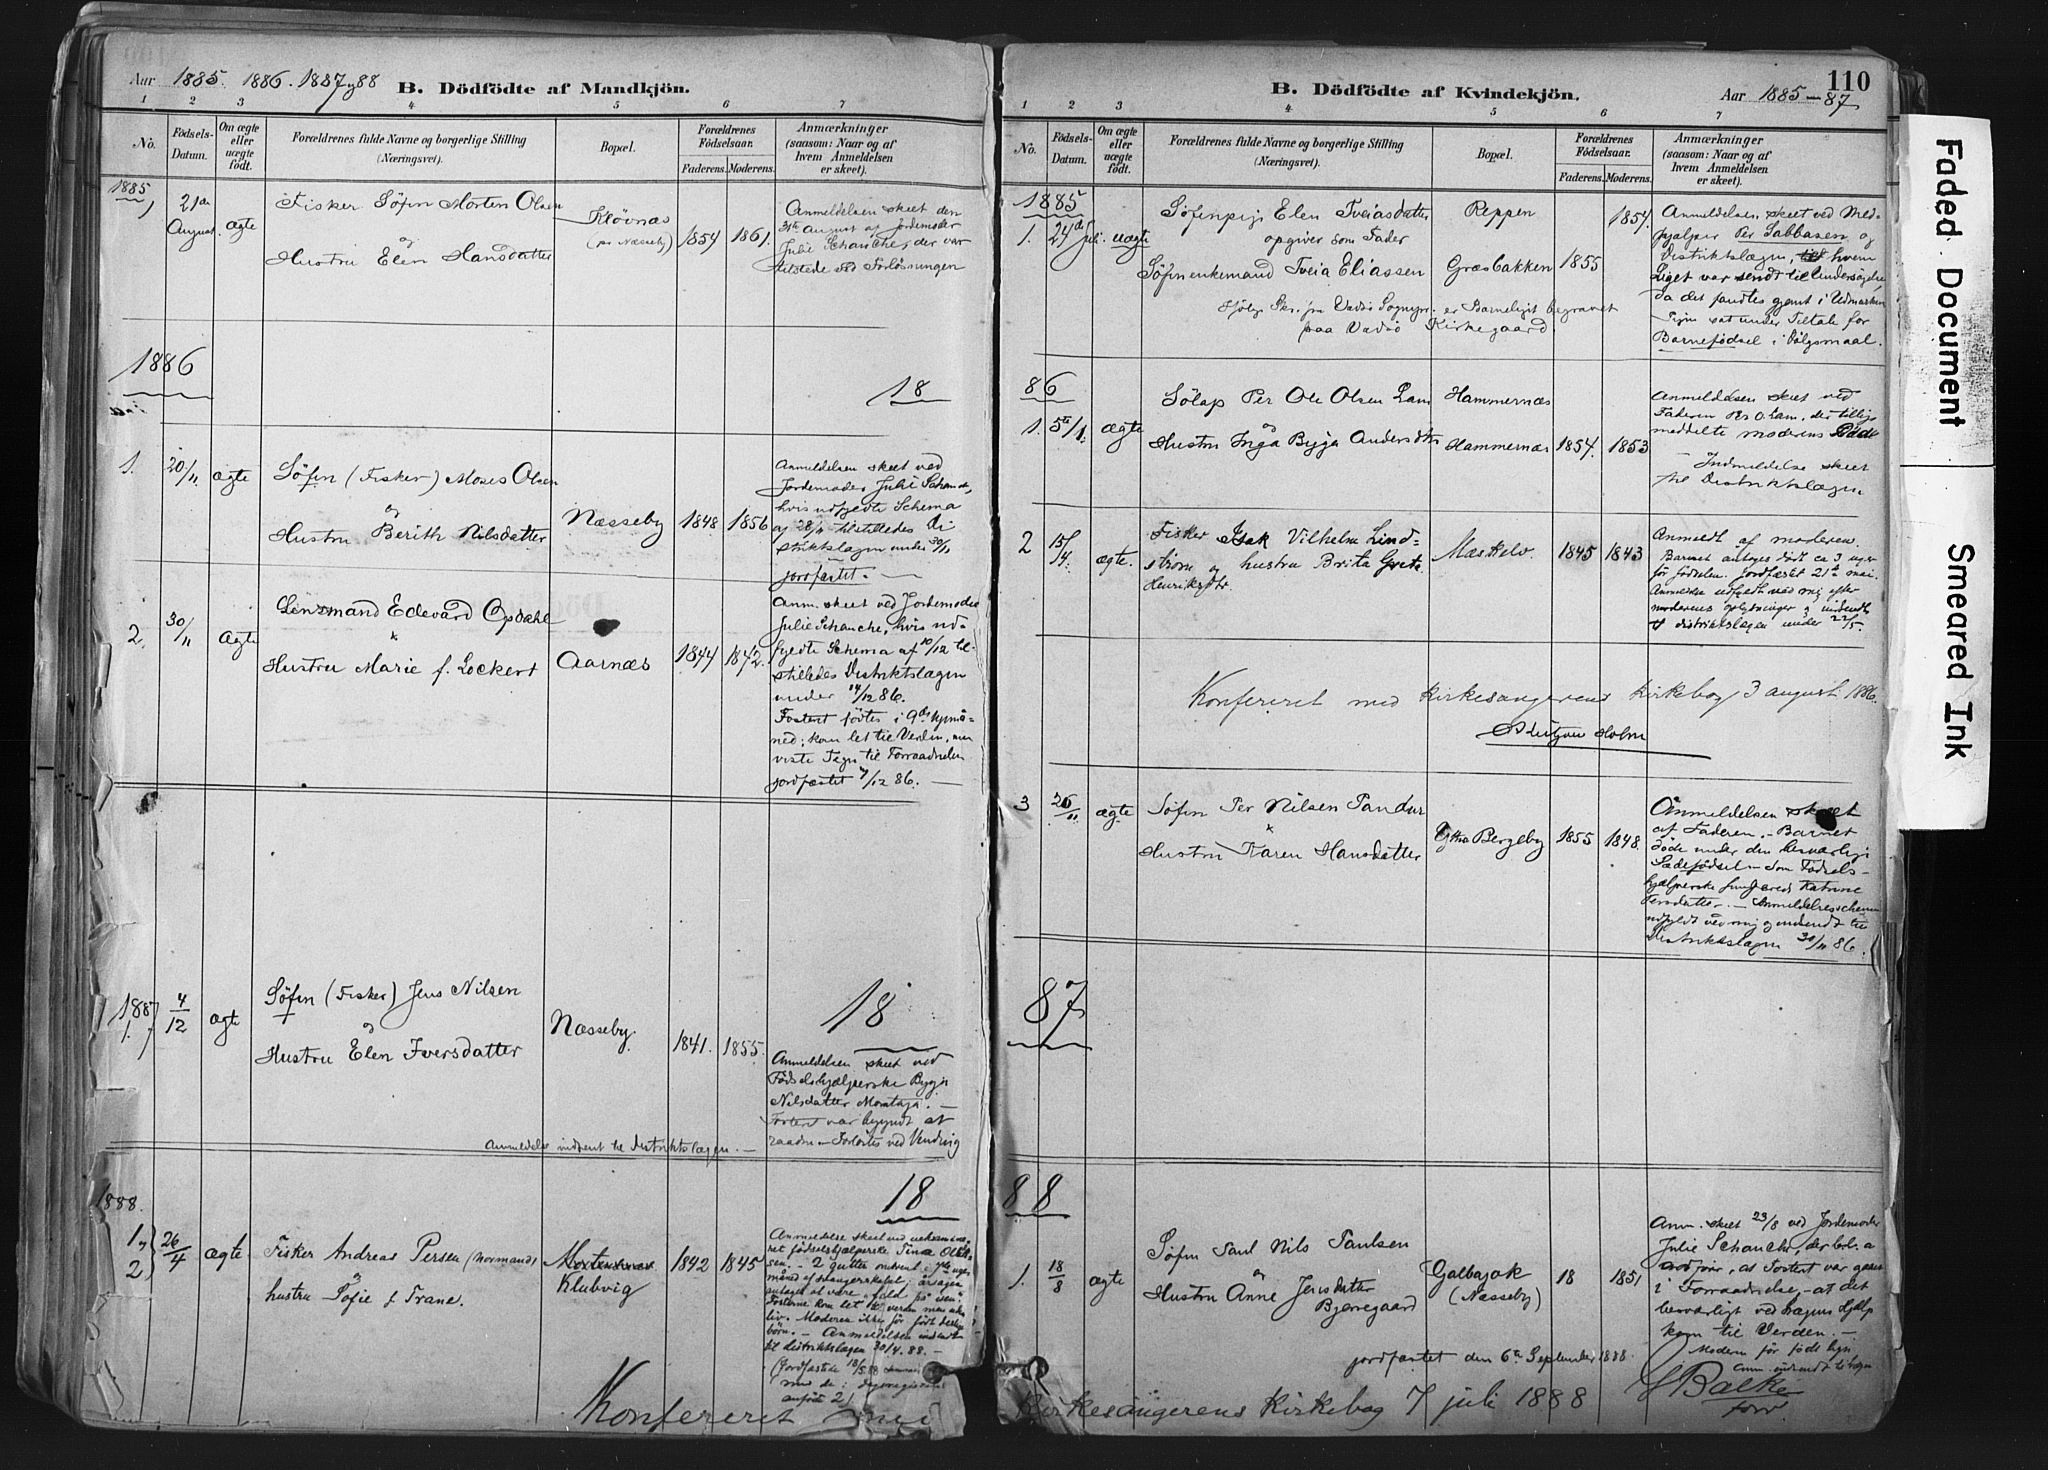 Aar 1885. 1886. 1887 og 88
B. Dödfödte af Mandkjön.
1 2 3 4 5 6 7
No.
Födsels-
Datum.
Om ægte
eller
uægte
födt.
Forældrenes fulde Navne og borgerlige Stilling
(Næringsvei).
Bopæl.
Forældrenes
Födselsaar.
Faderens. Moderens.
Anmærkninger
(saasom: Naar og af
hvem Anmeldelsen
er skeet).
1885
1 21de August ægte
Fisker Söfin Morten Olsen
og
Hustru Elen Hansdatter
Klövnæs
(pr Næsseby)
1854 1861.
Anmeldelsen skeet den
31te August af Jordemoder
Julie Schanche, der var
tilstede ved Forlösningen
1886
18
1. 20/11 ægte
Söfin (Fisker) Moses Olsen
og
Hustru Berith Nilsdatter
Næsseby 1848 1856
Anmeldelsen skeet ved
Jordemoder Julie Schanche,
hvis udfyldte Schema
af 28/11 tilstilledes Di
striktslægen under 30/11
jordfæstet. —
2. 30/11 ægte
Lensmand Edevard Opdahl
Hustru Marie f. Lockert
Aarnæs 1844 1842.
Anm. skeet ved Jordemoder
Julie Schanche, hvis ud-
fyldte Schema af 10/12 til-
stilledes Distriktslægen
under 14/12 86.
Fosteret födtes i 9de
ned; kom let til Verden, men
viste Tegn til Forraadnelse
jordfæstet 7/12 86. —
1887
1. 4/12 ægte
Söfin (Fisker) Jens Nilsen
og
Hustru Elen Iversdatter
Næsseby. 1841. 1855.
18
Anmeldelsen skeet ved
Födselshjælperske Bygja
Nilsdatter Mortaja. —
Fosteret var begyndt at
raadne — Forlöstes ved Vending
Anmeldelse indsent til Distriktslægen. —
1888.
18
1 og 2 26/4 ægte
Fisker Andreas Persen (Normand)
og
hustru Sofie f. Trane.
Klubvig
1842 1845
Anmeldelse skeet ved uexamine-
ret födselshjælperske Tina Olsen
2 gutter
Fosterne kom let til verden men uden
liv. Moderen ikke för födt dödfödte
börn. — Anmeldelsen indsendt
til distriktslægen 30/4. 88. —
(Jordfæstede 18/5 88
anfört 2)
Konfereret med
B. Dödfödte af Kvindekjön.
Aar 1885—87
110
1 2 3 4 5 6 7
No.
Födsels-
Datum.
Om ægte
eller
uægte
födt.
Forældrenes fulde Navne og borgerlige Stilling
(Næringsvei).
Bopæl.
Forældrenes
Födselsaar.
Faderens. Moderens.
Anmærkninger
(saasom: Naar og af
hvem Anmeldelsen
er skeet).
1885
1. 24de juli. uægte
Söfinpige Elen Tveiasdatter
opgiver som Fader
Söfinenkemand Tveia Eliassen
Reppen
Græsbakken
1855 1854.
Anmeldelsen skeet ved Med-
hjælper Per Sabbasen og
Distriktslægen, til hvem
Liget var sendt til Undersögelse
da det fandtes gjemt i Udmarken
Pigen sat under Tiltale for
Barnefödsel i Dölgsmaal.
Ifölge Skr. fra Vadsö Sognepr. er Barneliget begravet
paa Vadsö Kirkegaard
86
1. 5te/1. ægte
Sölap Per Ole Olsen Lam
og
Hustru Inga Bygja Andersdtr
Hammernæs
Hammernæs 1854. 1853
Anmeldelsen skeet ved
Faderen Per O. Lam, der tillige
meddelte moderens Död
— Indmeldelse skeet
til Distriktslægen
2 15/4. ægte.
Fisker Isak Vilhelm Lind-
ström og hustru Brita Grete
Henriksdtr.
Mæskelv 1845 1843
Anmeldt af moderen.
Barnet antages dödt ca 3 uger
för födselen. Jordfæstet 21de mai.
Anmeldelse udfyldt ved mig efter
moderens oplysninger og indsendt
til distriktslægen under 22/5.
Konfereret med kirkesangerens kirkebog 3 august 1886.
Holm
3 26/11 ægte
Söfin Per Nilsen Pandur
Hustru Karen Hansdatter
Yttre Bergeby 1855 1848.
Anmeldelsen skeet
af Faderen. — Barnet
döde under den besværlige
Sædefödsel — Som Födsels-
hjælperske fungerede Katrine
Persdatter. — Anmeldelsesschema
udfyldt ved mig og indsendt til
Distriktslægen 30/11 86.
87
88
1. 18/8 ægte
Söfin Paul Nils Paulsen
og
Hustru Anne Jensdatter
Bjerregaard
Galbajok
(Næsseby)
18 1851
Anm. skeet 23/8 ved Jordemoder
Julie Schanche, der bl. a
at Fostert var gaaet
i Forraadnelse, — at det
besværligt ved Lægens Hjælp
kom til Verden. —
Modern för födt
Anm. indsendt til Lægen
jordfæstet den 6te September 1888.
Kirkesangerens Kirkebog 7 juli 1888
Balke
Faded Document
Smeared Ink